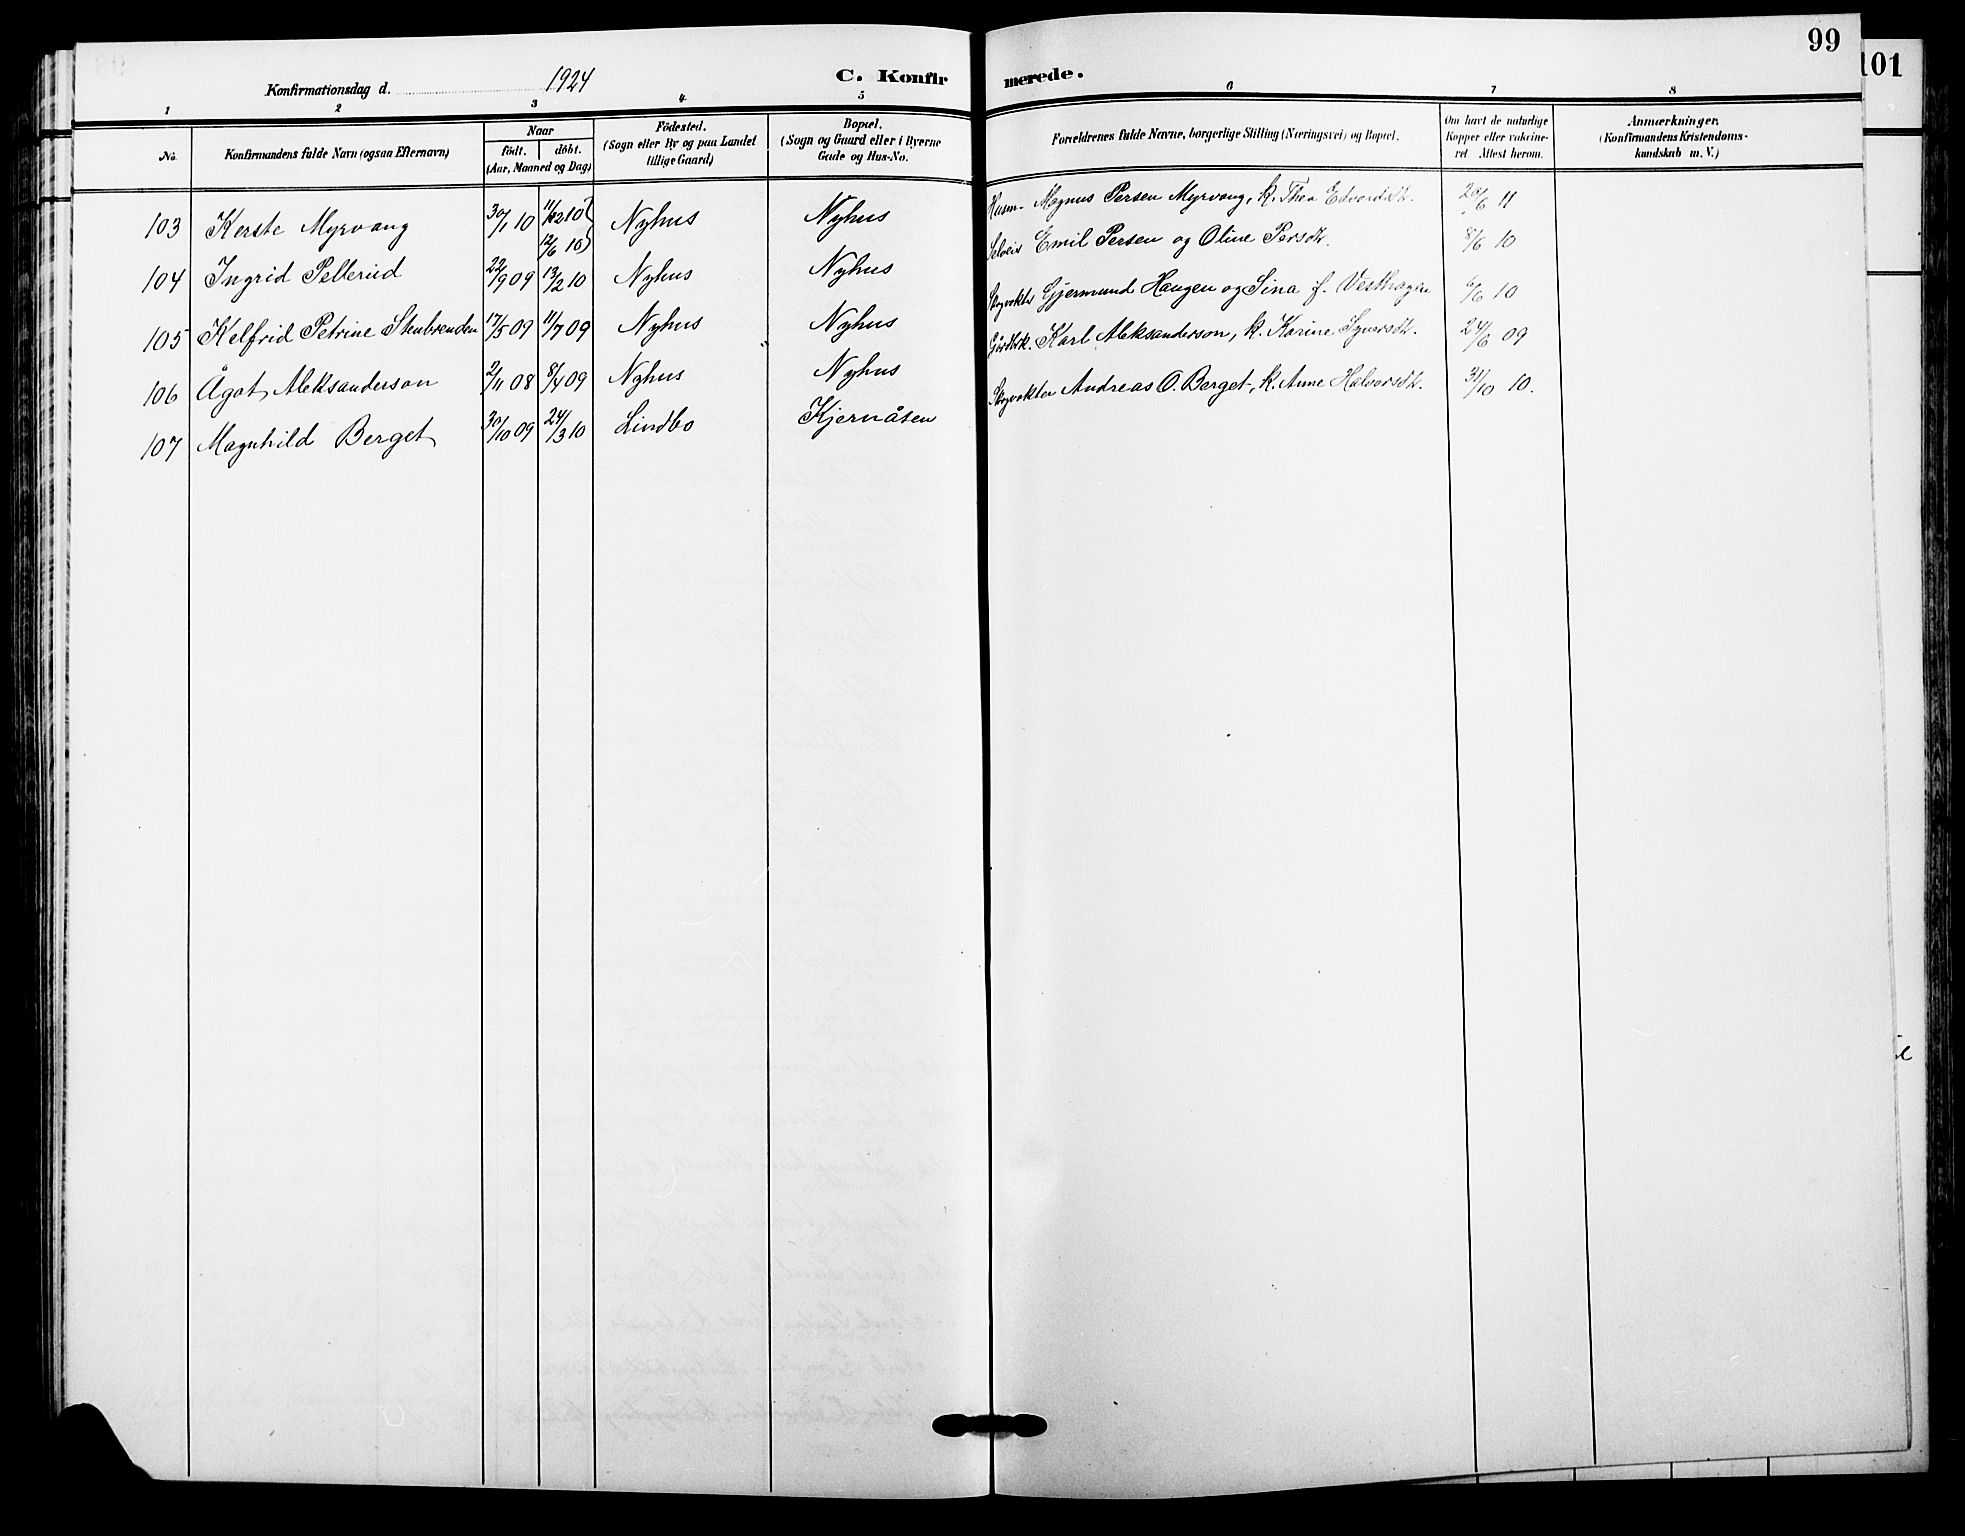 99
101
Konfirmationsdag d. 1924
C. Konfirmerede.
1 2 3 4 5 6 7 8
No. Konfirmandens fulde Navn (ogsaa Efternavn) Naar födt. döbt. (Aar, Maaned og Dag) Födested. (Sogn eller By og paa Landet tillige Gaard) Bopæl. (Sogn og Gaard eller i Byerne Gade og Hus-No. Forældrenes fulde Navne, borgerlige Stilling (Næringsvei) og Bopæl. Om havt de naturlige Kopper eller vakcineret Attest herom. Anmærkninger. (Konfirmandens Kristendomskundskab m. V.)
103 Kerste Myrvang 30/1 10 11/12 10 Nyhus Nyhus Husm. Magnus Persen Myrvang, k. Thea Edvardsdt. 20/6 11
104 Ingrid Pellerud 22/9 09 12/6 10 13/2 10 Nyhus Nyhus Selveier Emil Persen og Oline Persdt. 8/6 10
105 Kelfrid Petrine Stenbrenden 17/5 09 11/7 09 Nyhus Nyhus Skogvokter Gjermund Haugen og Sina f. Vesthagen 6/6 10
106 Ågot Aleksanderson 2/11 08 8/4 09 Nyhus Nyhus Gårdbr. Karl Aleksanderson, k. Karine Syversdt. 24/6 09
107 Magnhild Berget 30/10 09 24/3 10 Lindbo Kjernåsen Skogvokter Andreas O. Berget, k. Anne Halvorsdt. 31/10 10.